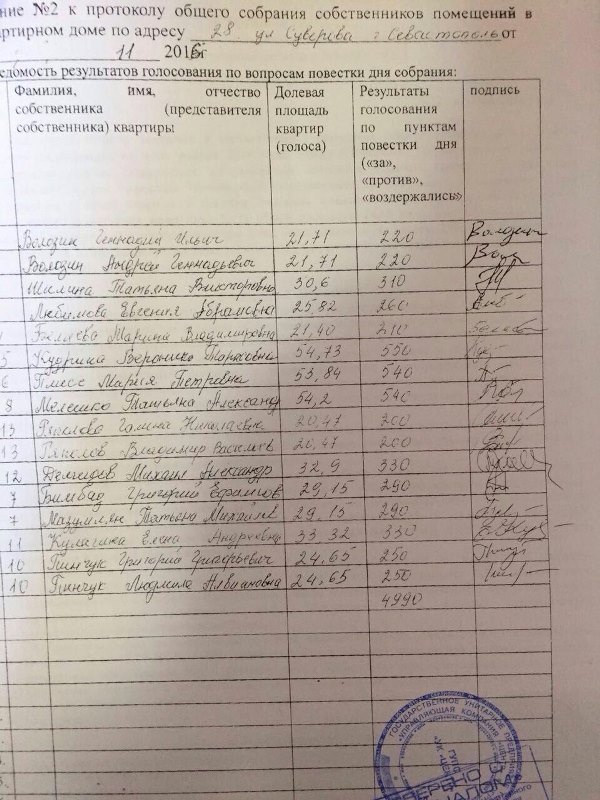 ние №2 к протоколу общего собрания собственников помещений в
артирном доме по адресу 28 ул Суворова г Севастополь от
11 2016г
едомость результатов голосования по вопросам повестки дня собрания:
Фамилия, имя, отчество собственника (представителя собственника) квартиры
Долевая площадь квартир (голоса)
Результаты голосования по пунктам повестки дня («за», «против», «воздержались»
подпись
Володин Геннадий Ильич 21,71 220
Володин Андрей Геннадьевич 21,71 220
Шилина Татьяна Викторовна 30,6 310
Любимова Евгения Абрамовна 25,82 260
Беляева Марина Владимировна 21,40 210
5 Кудрина Вероника Марковна 54,73 550
6 Плисс Мария Петровна 53,84 540
8 Мелешко Татьяна Александр 54,2 540
13 Галина Николаевна 20,47 200
13 Владимир Васильев 20,47 200
12 Михаил Александр 32,9 330
7 Бимбад Григорий Ефимов 29,15 290
7 Татьяна Михайл 29,15 290
11 Кулагина Елена Андреевна 33,32 330
10 Пинчук Григорий Григорьевич 24,65 250
10 Пинчук Людмила Алвиановна 24,65 250
4990
ГОСУДАРСТВЕННОЕ УНИТАРНОЕ ПРЕДПРИ
УПРАВЛЯЮЩАЯ КОМПАНИЯ
ГУПС